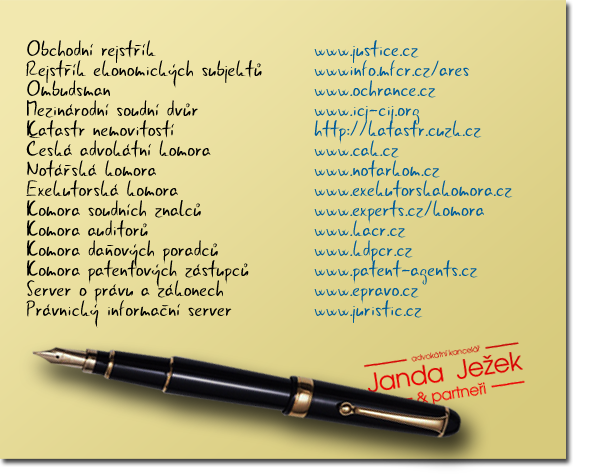 Obchodní rejstřík www.justice.cz
Rejstřík ekonomických subjektů www.info.mfcr.cz/ares
Ombudsman www.ochrance.cz
Mezinárodní soudní dvůr www.icj-cij.org
Katastr nemovitostí http://katastr.cuzk.cz
Česká advokátní komora www.cak.cz
Notářská komora www.notarkom.cz
Exekutorská komora www.exekutorskakomora.cz
Komora soudních znalců www.experts.cz/komora
Komora auditorů www.kacr.cz
Komora daňových poradců www.kdpcr.cz
Komora patentových zástupců www.patent-agents.cz
Server o právu a zákonech www.epravo.cz
Právnický informační server www.juristic.cz
advokátní kancelář
Janda Ježek
& partneři